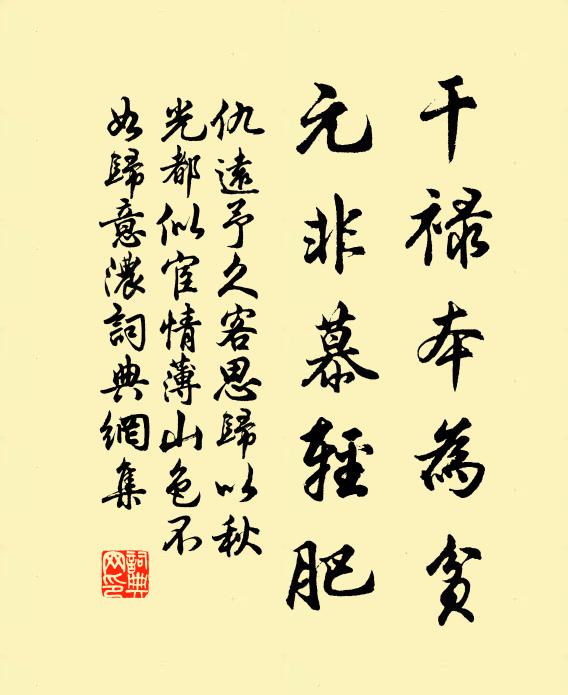 干禄本為貧
元非慕輕肥
仇遠予久客思歸以秋
光都似宦情薄山色不
如歸意濃詞典網集
詞典
网印